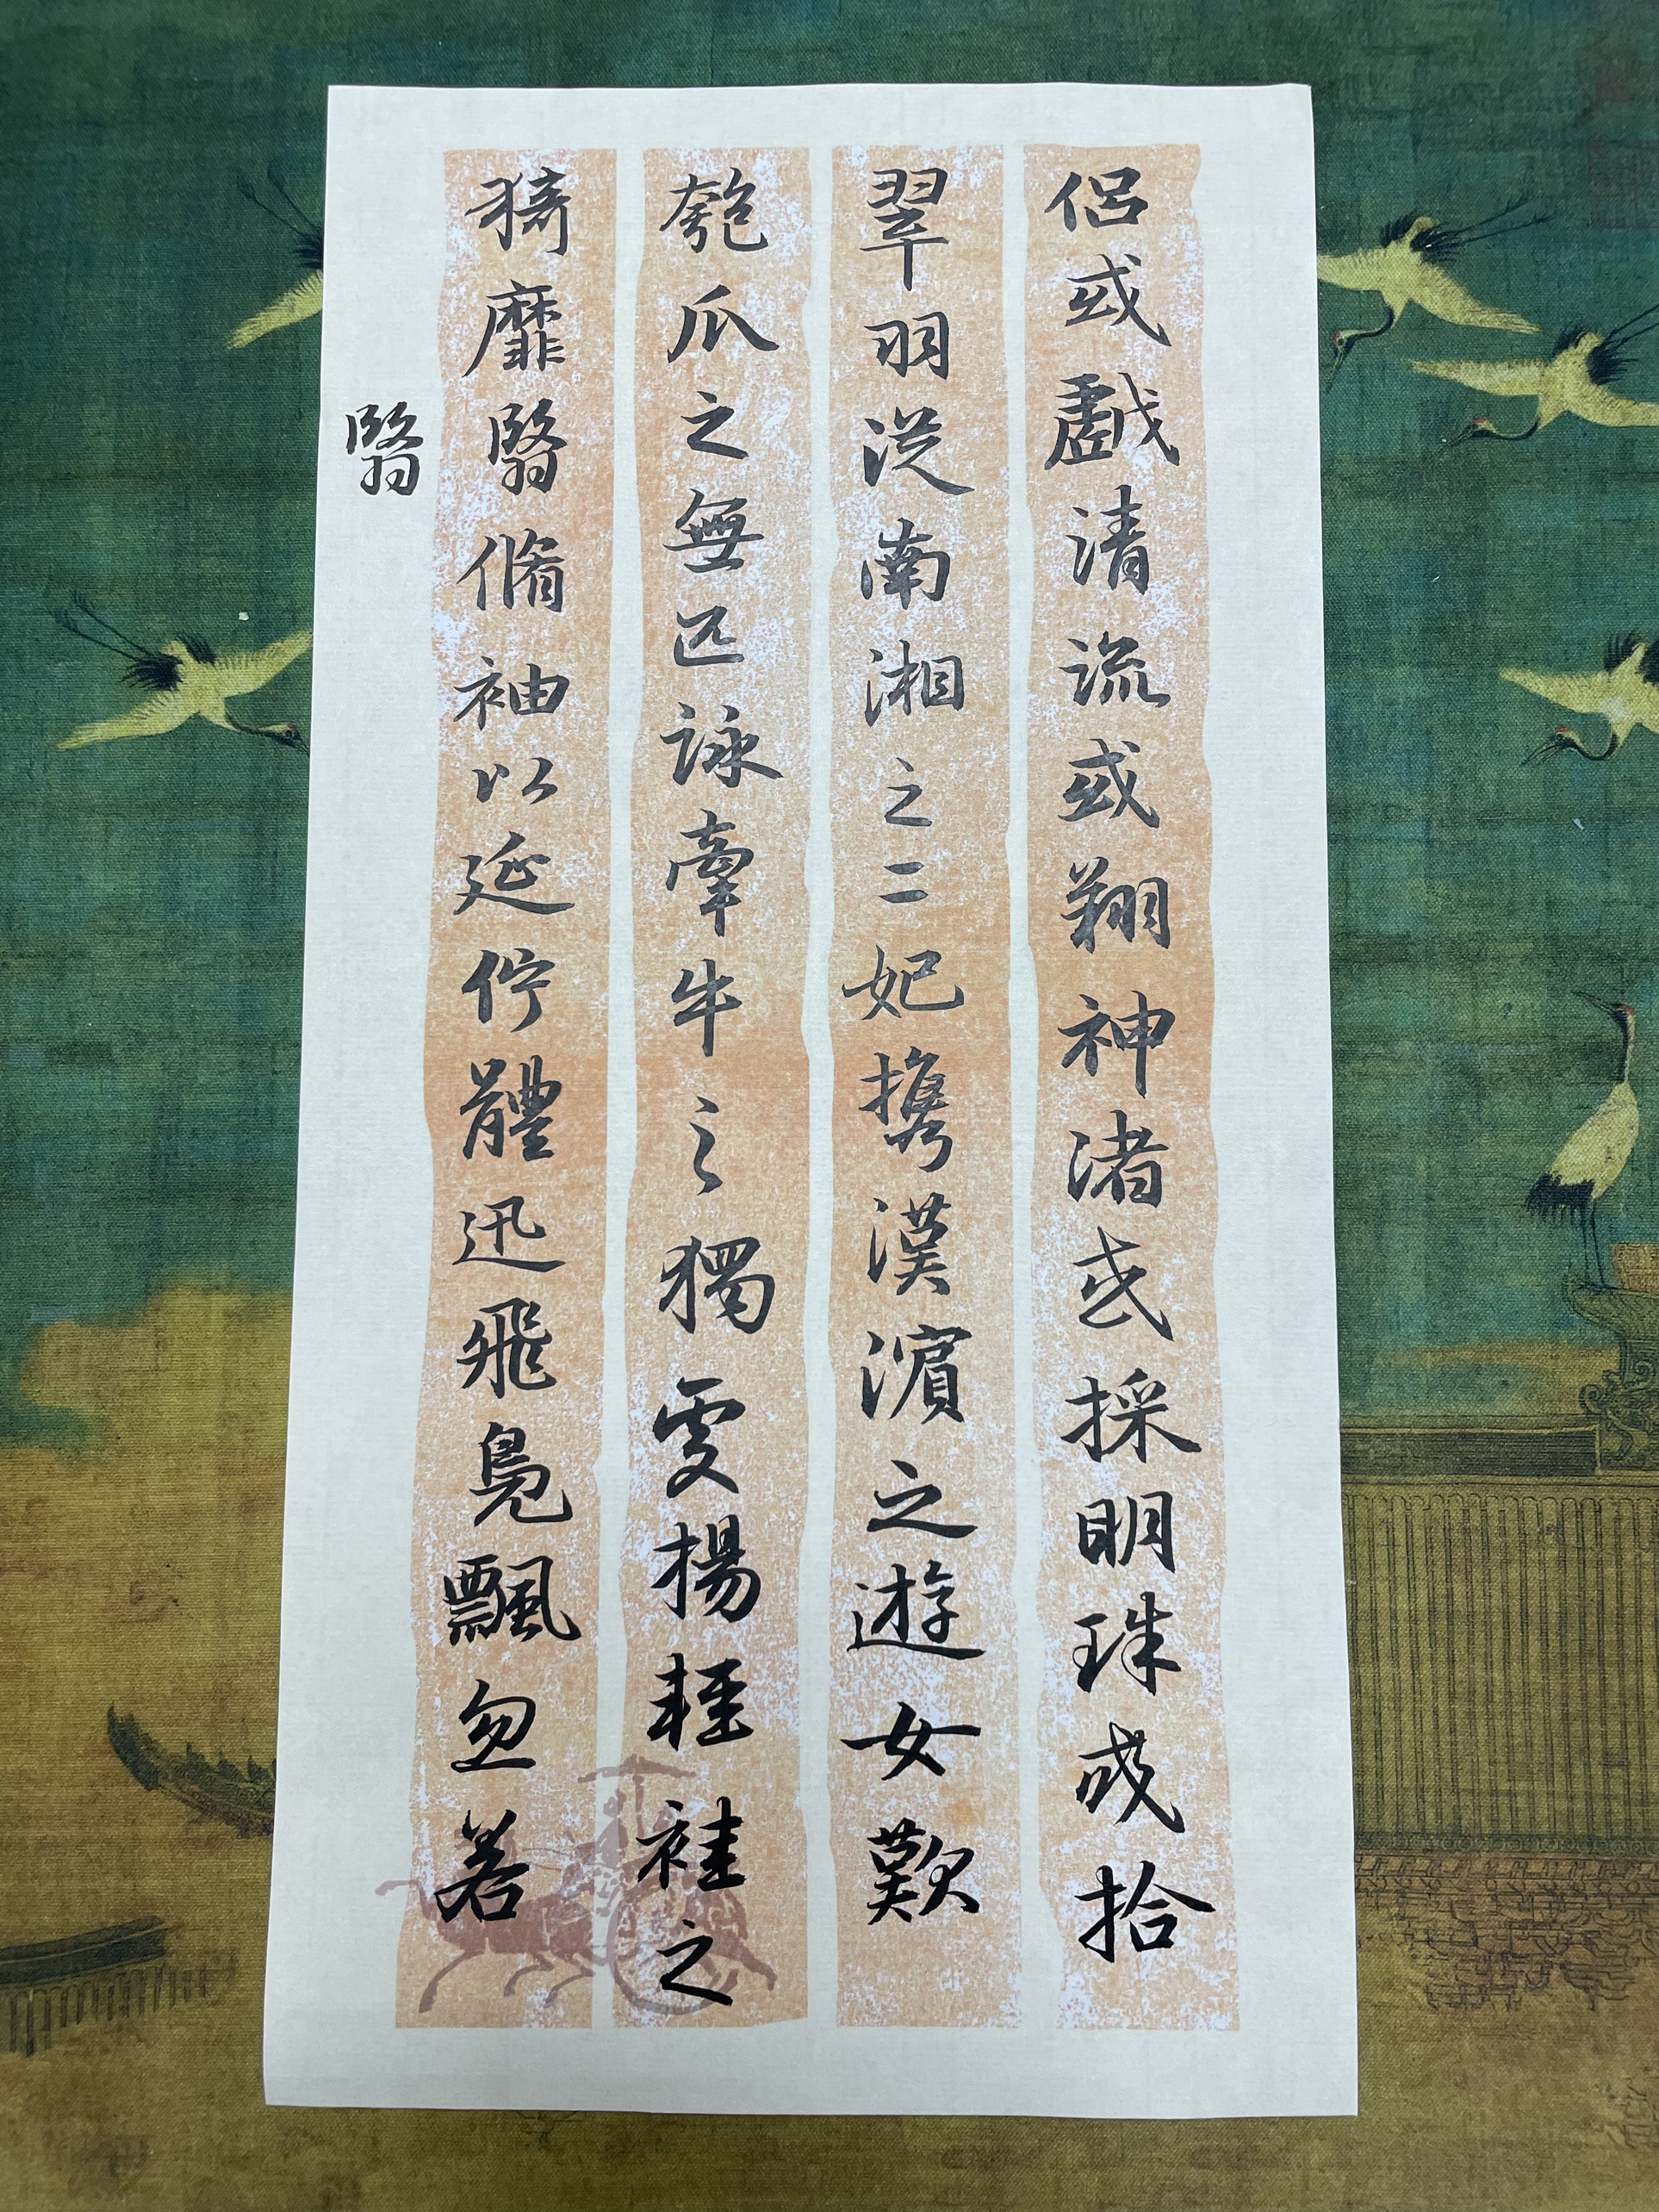 侶或戲清流或翔神渚或採明珠或拾
翠羽從南湘之二妃攜漢濱之遊女歎
匏瓜之無匹詠牽牛之獨處揚輕袿之
猗靡翳脩袖以延佇體迅飛鳧飄忽若
翳